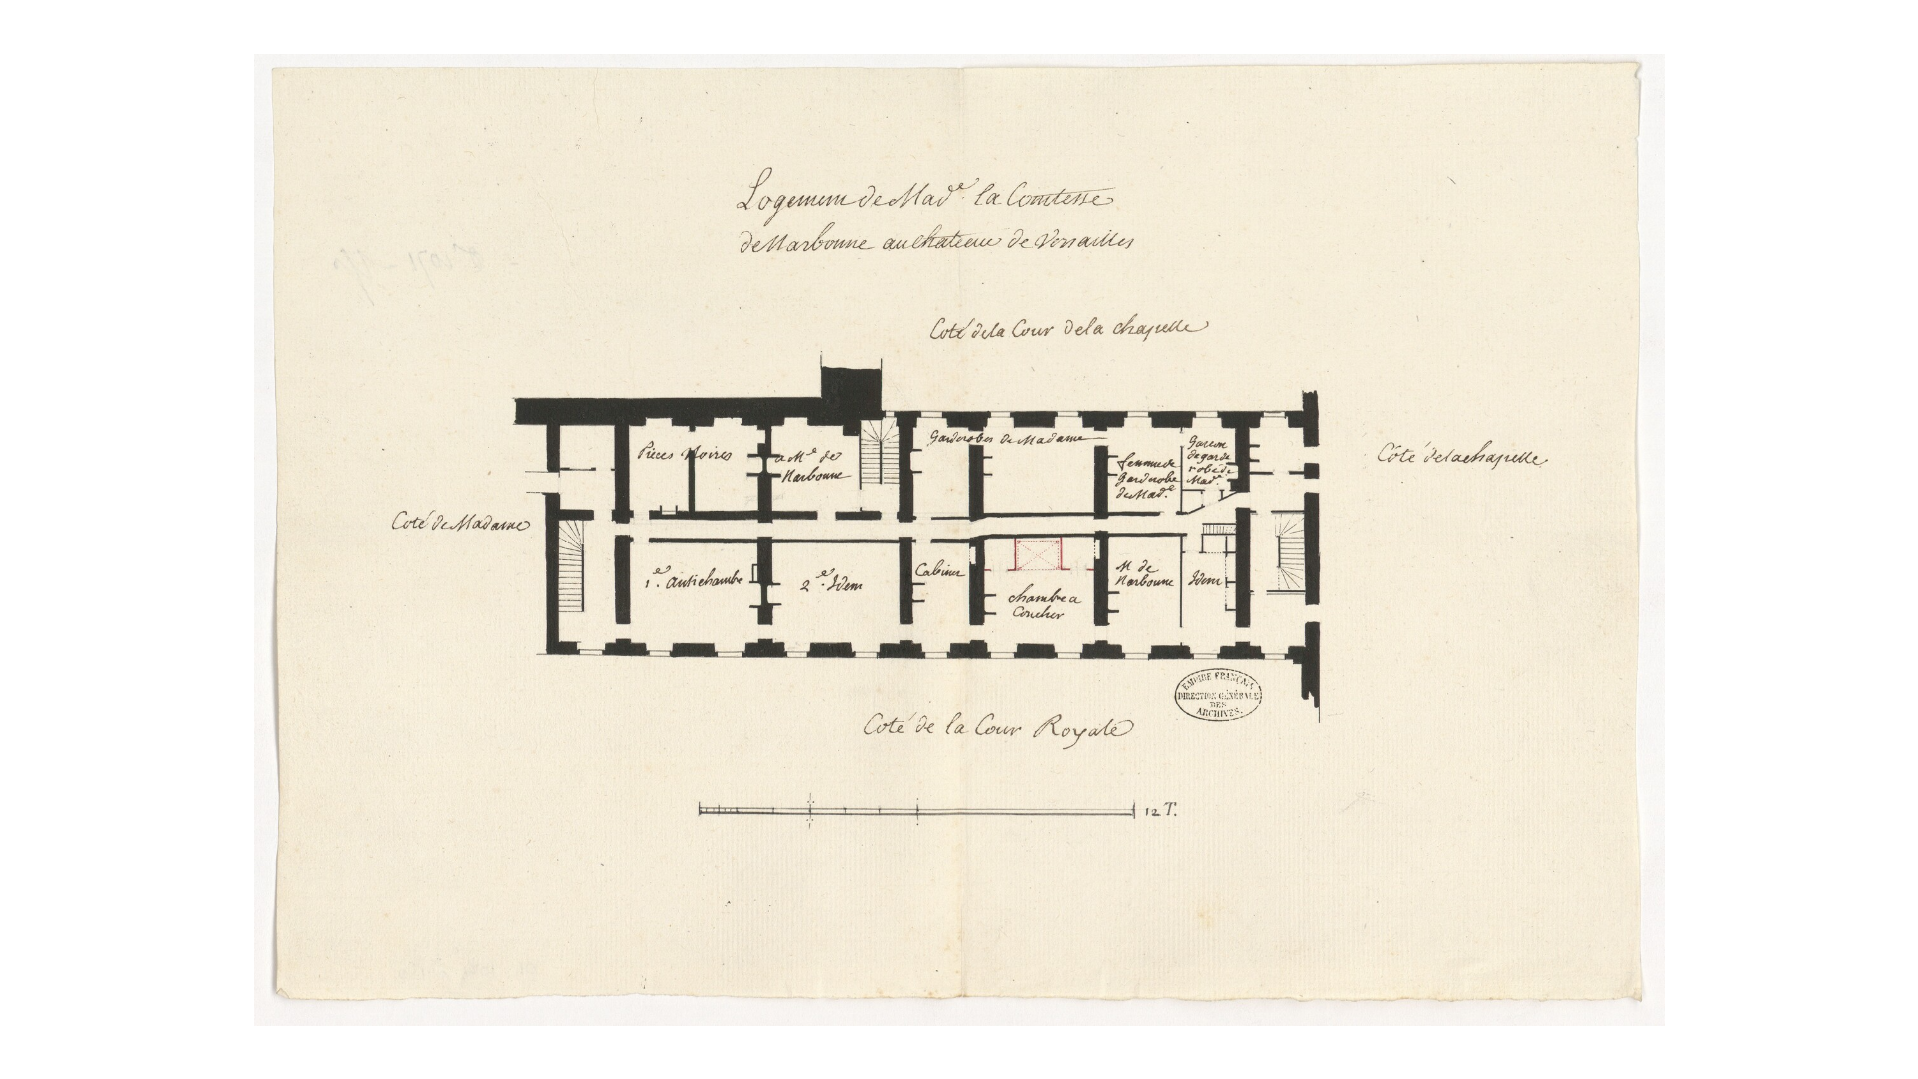 Logement de Mad.e la Comtesse
de Narbonne au chateau de Versailles
Coté de la Cour de la chapelle
Garderobes de Madame
Pièces Noires
a M.e de
Narbonne
femme de
Garderobe
de Mad.e
Garcon
de garde
robe de
Mad.e
Coté de la chapelle
Coté de Madame
1.e Antichambe
2.e Idem
Cabinet
chambre a
Coucher
M. de
Narbonne
Idem
EMPIRE FRANÇAIS
DIRECTION GÉNÉRALE
DES
ARCHIVES.
Coté de la Cour Royale
12 T.